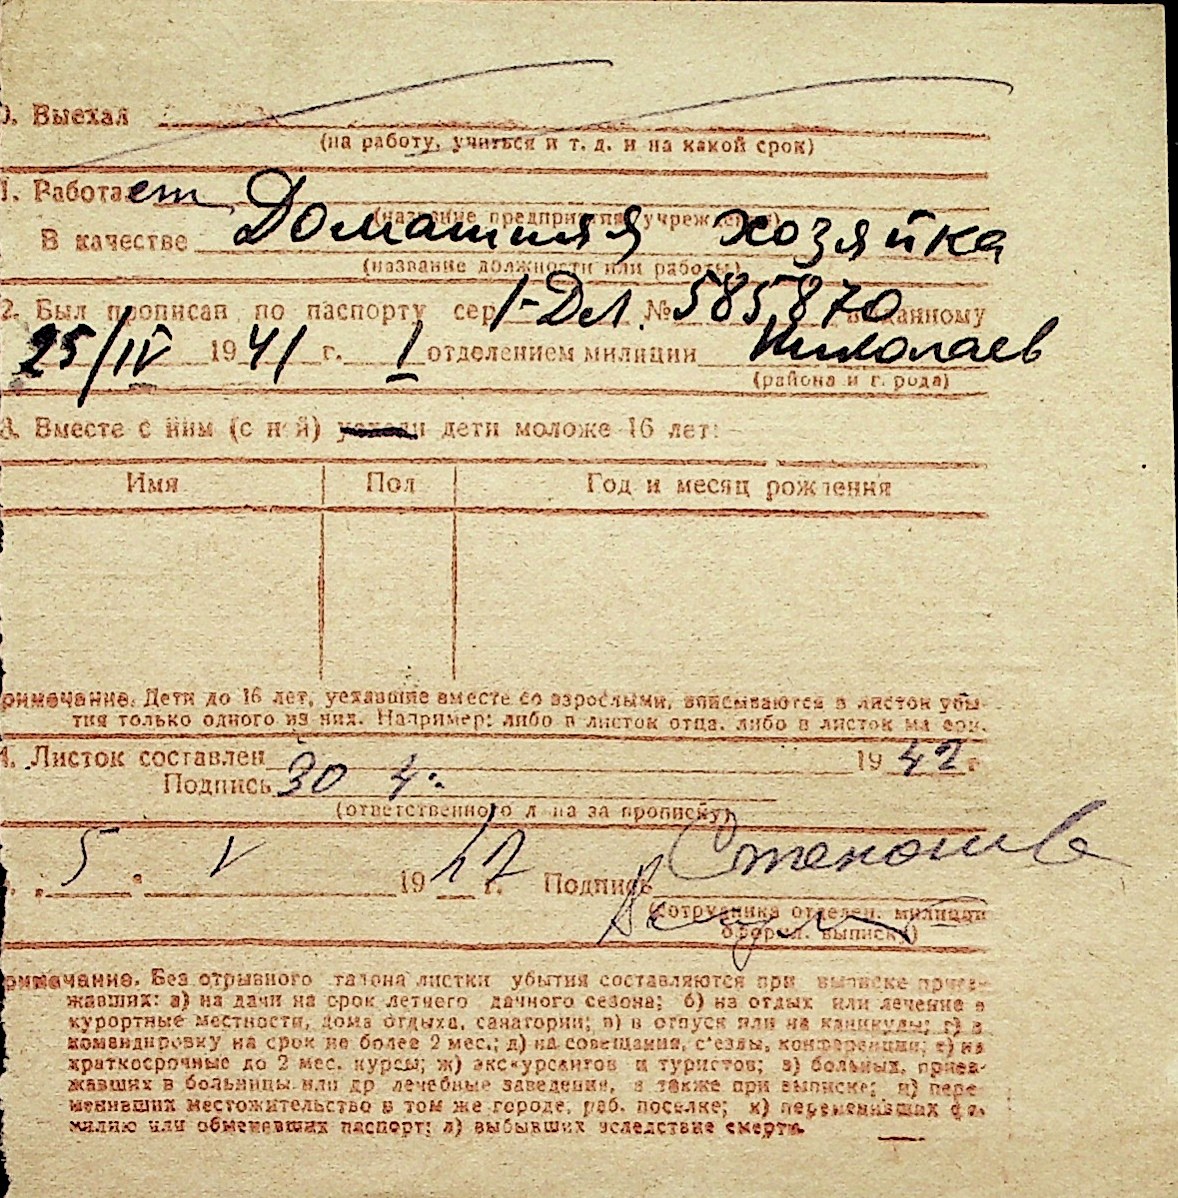 0. Выехал
(на работу, учиться и т. д. и на какой срок)
1. Работает
(название предприятия, учреждения)
В качестве Домашняя хозяйка
(название должности или работы)
2. Был прописан по паспорту сер. 1-Дел. № 585870 выданному
25/IV 1941 г. I отделением милиции Николаев
(района и г. рода)
3. Вместе с ним (с ней) дети моложе 16 лет:
Имя Пол Год и месяц рождения
римечание. Дети до 16 лет, уехавшие вместе со взрослыми, вписываются в листок убы-
тия только одного из них. Например: либо в листок отца, либо в листок ма ери.
4. Листок составлен 1942 г.
Подпись 30 4.
(ответственного л на за прописку)
5 V 1942 г. Подпись
(сотрудника отделен. милиции
о выписки)
римечание. Без отрывного талона листки убытия составляются при выписке приез-
жавших: а) на дачи на срок летнего дачного сезона; б) на отдых или лечение в
курортные местности, дома отдыха, санатории; в) в отпуск или на каникулы; г) в
командировку на срок не более 2 мес.; д) на совещания, с'езды, конференции; е) на
краткосрочные до 2 мес. курсы; ж) экскурсантов и туристов; з) больных, приез-
жавших в больницы или др лечебные заведения, а также при выписке; и) пере
менивших местожительство в том же городе, раб. поселке; к) переменивших фа-
милию или обменявших паспорт; л) выбывших вследствие смерти.